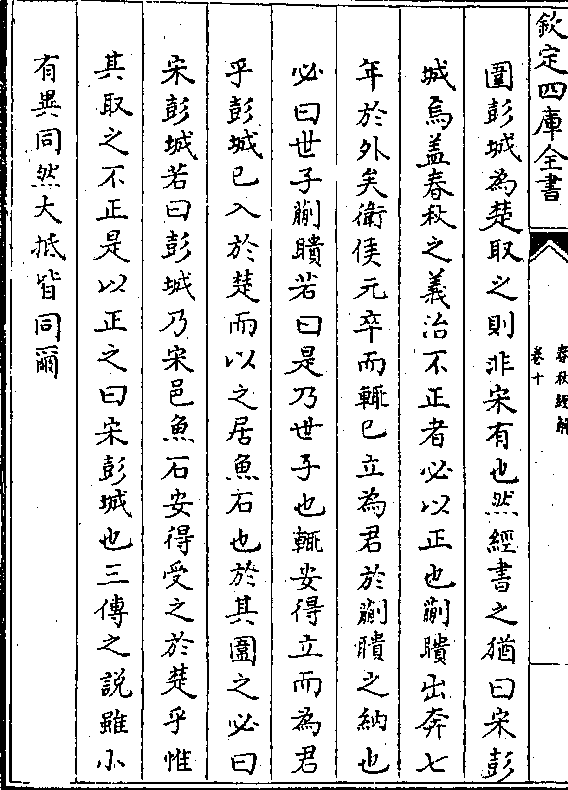 欽定四庫全書
春秋經解
卷十
圍彭城為楚取之則非宋有也然經書之猶曰宋彭
城焉盖春秋之義治不正者必以正也蒯聵出奔七
年於外矣衛侯元卒而輒已立為君於蒯聵之納也
必曰世子蒯聵若曰是乃世子也輒安得立而為君
乎彭城已入於楚而以之居魚石也於其圍之必曰
宋彭城若曰彭城乃宋邑魚石安得受之於楚乎惟
其取之不正是以正之曰宋彭城也三傳之説雖小
有異同然大抵皆同爾